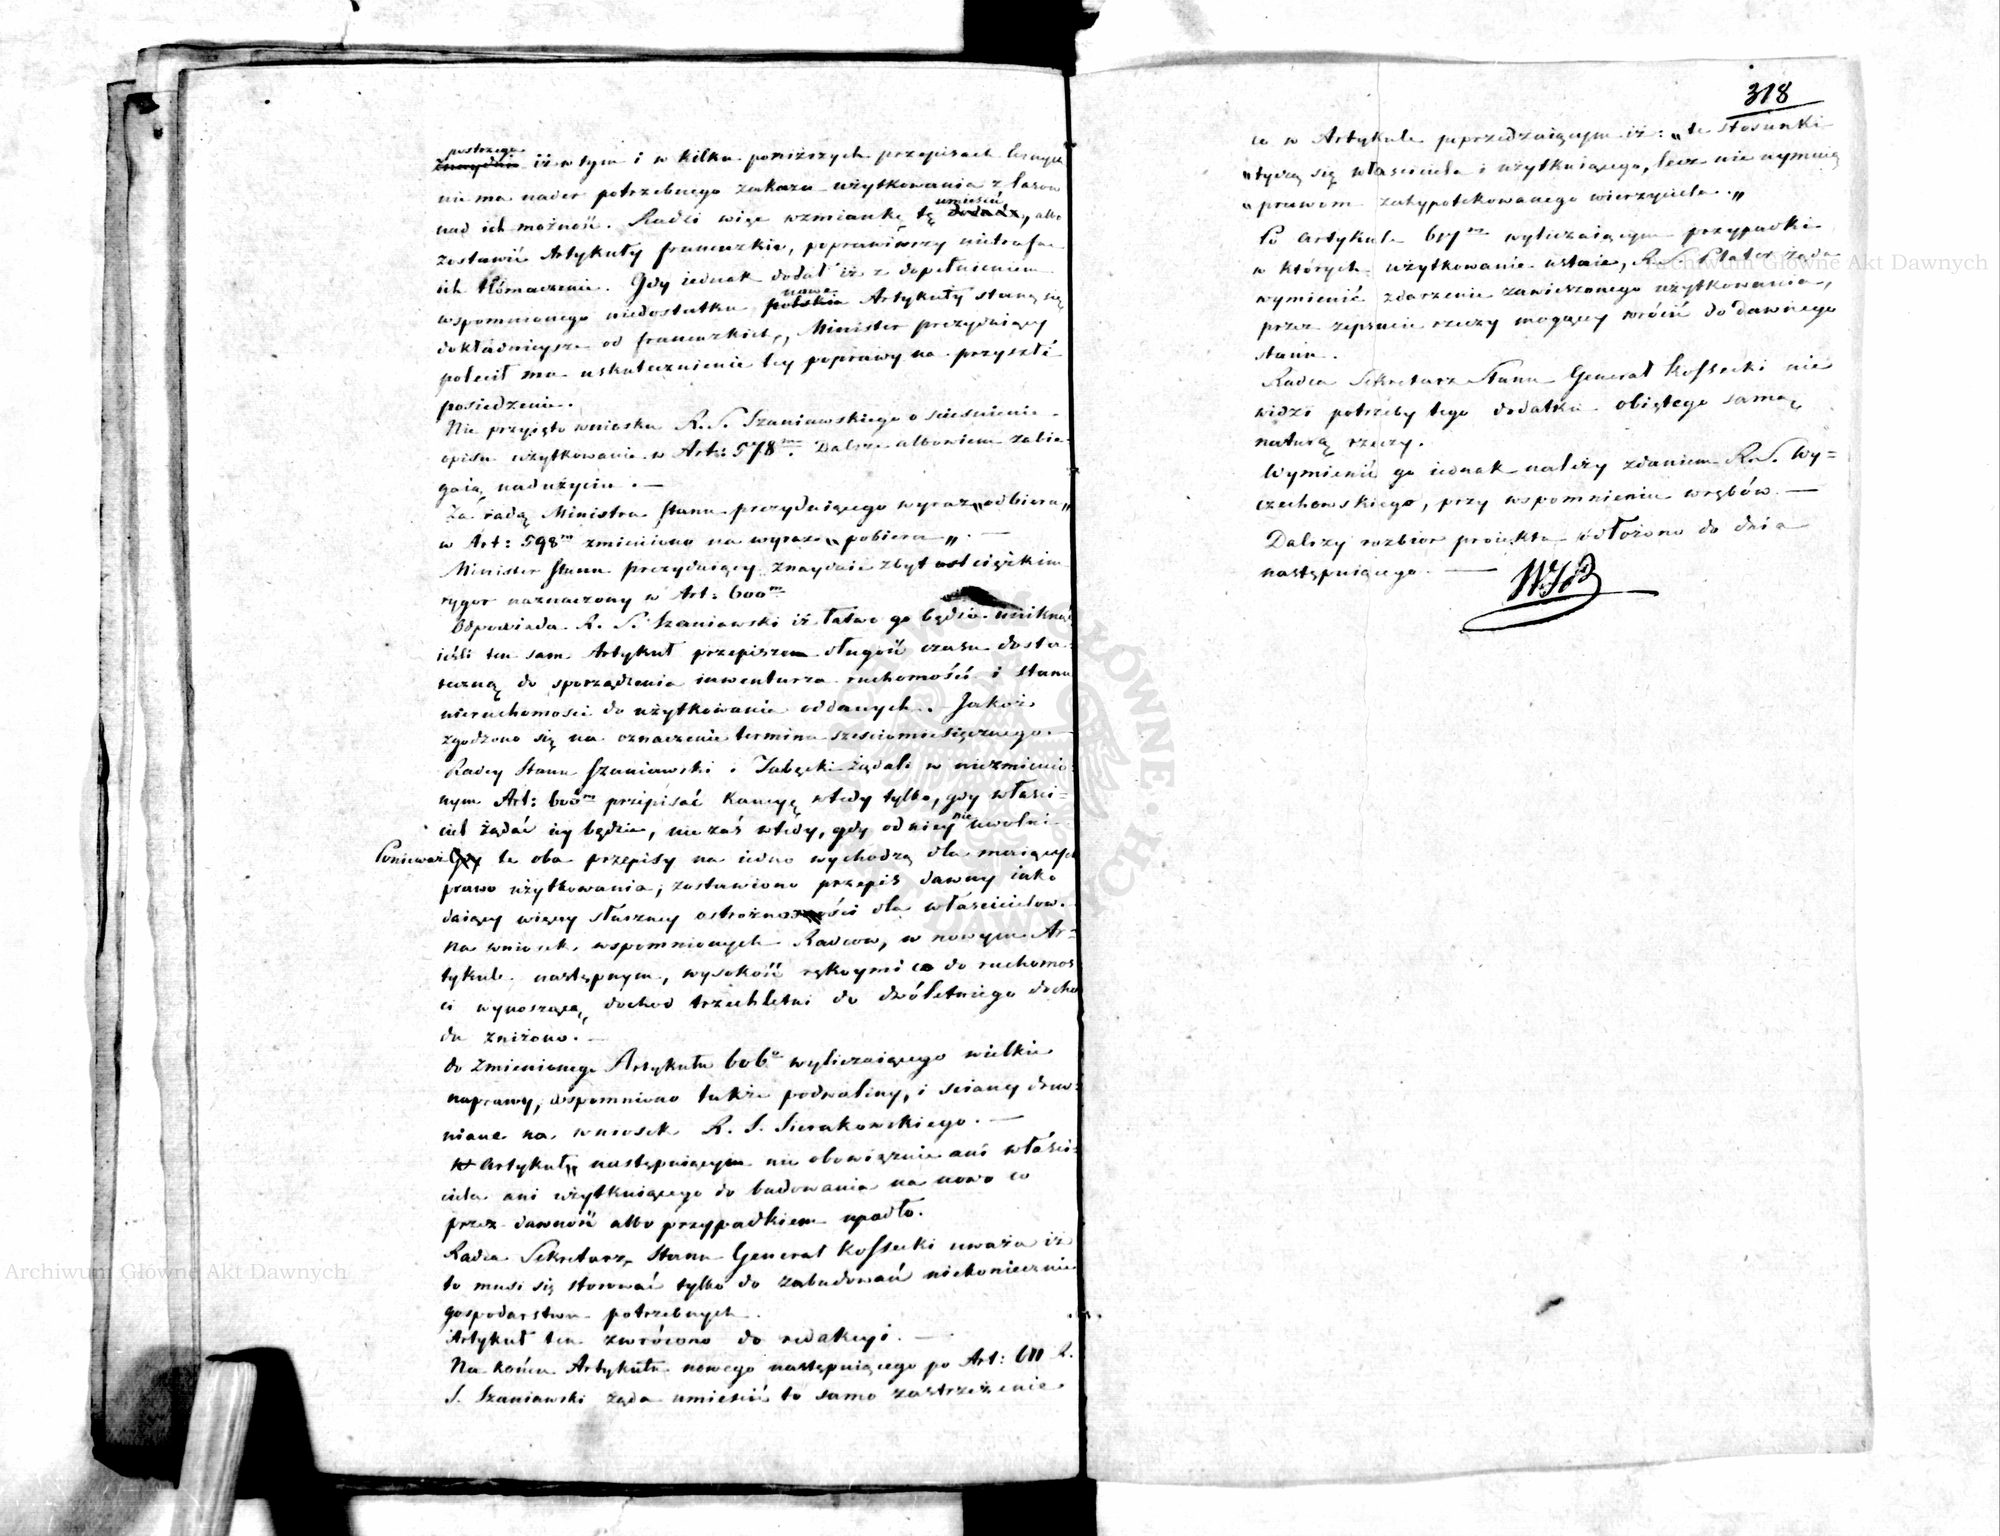 postrzega
znayduie iż w tym i w kilku poniższych przepisach
nie ma nader potrzebnego zakazu użytkowania z lasow
umieścić
nad ich możność. Radzi więc wzmiankę tę dodać, albo
zostawić Artykuły francuzkie, poprawiwszy nietrafne
ich tłómaczenie. Gdy iednak dodał iż z dopełnieniem
nowe
wspomnionego niedostatku polskie Artykuły staną się
dokładnieysze od francuzkich, Minister prezyduiący
polecił ma uskutecznienie tey poprawy na przyszłé
posiedzenie.
Nie przyięto wniosku R. S. Szaniawskiego o ścieśnienie
opisu użytkowania w Art: 578m. Dalsze albowiem zabie-
gaią nadużyciu. —
Za radą Ministra Stanu prezyduiącego wyraz „odbiera„
w Art: 598m zmieniono na wyraz „pobiera„. —
Minister Stanu prezyduiący znayduie zbyt ciężkim
rygor naznaczony w Art: 600m
Odpowiada R. S. Szaniawski iż łatwo go będzie uniknąć
ieśli ten sam Artykuł przepisze długość czasu dosta-
teczną do sporządzenia inwentarza ruchomości i stanu
nieruchomości do użytkowania oddanych. Jakoż
zgodzono się na oznaczenie terminu sześciomiesięcznego. —
Radcy Stanu Szaniawski i Tubęcki żądali w niezmienio-
nym Art: 600m przepisać kaucyę wtedy tylko, gdy właści-
ciel żądać iey będzie, nie zaś wtedy, gdy od niey nie uwolni.
Ponieważ Gdy te oba przepisy na iedno wychodzą dla maiących
prawo użytkowania, zostawiono przepis dawny iako
daiący więcey słuszney ostrożności dla właścicielow.
Na wniosek wspomnionych Radcow, w nowym Ar-
tykule następnym, wysokość rękoymi co do ruchomoś-
ci wynoszącą dochod trzechletni do dwóletniego docho-
du zniżono. —
do Zmienionego Artykułu 606o wyliczaiącego wielkie
naprawy, wspomniono także podwaliny, i ściany drew-
niane na wniosek R. S. Sierakowskiego. —
W Artykule następuiącym nie obowiązuie ani właści-
ciela ani użytkuiącego do budowania na nowo co
przez dawność albo przypadkiem upadło.
Radca Sekretarz Stanu Generał Kossecki uważa iż
to musi się stosować tylko do zabudowań niekoniecznie
gospodarstwu potrzebnych.
Artykuł ten zwrócono do redakcyi. —
Na końcu Artykułu nowego następuiącego po Art: 611 R.
S. Szaniawski żąda umieścić to samo zastrzeżenie
318
co w Artykule poprzedzaiącym iż: „te stosunki
„tyczą się właściciela i użytkuiącego, lecz nie uymuią
„prawom zahypotekowanego wierzyciela.„
Po Artykule 617m wyliczaiącym przypadki
w których użytkowanie ustaie, R. S. Plater żąda
wymienić zdarzenie zawieszonego użytkowania,
przez zepsucie rzeczy mogącey wrócić do dawnego
stanu.
Radca Sekretarz Stanu Generał Kossecki nie
widzi potrzeby tego dodatku obiętego samą
naturą rzeczy.
Wymienić go iednak należy zdaniem R. S. Wy-
czechowskiego, przy wspomnieniu wrębów. —
Dalszy rozbior proiektu odłożono do dnia
następuiącego. —
Archiwum Główne Akt Dawnych
Archiwum Główne Akt Dawnych